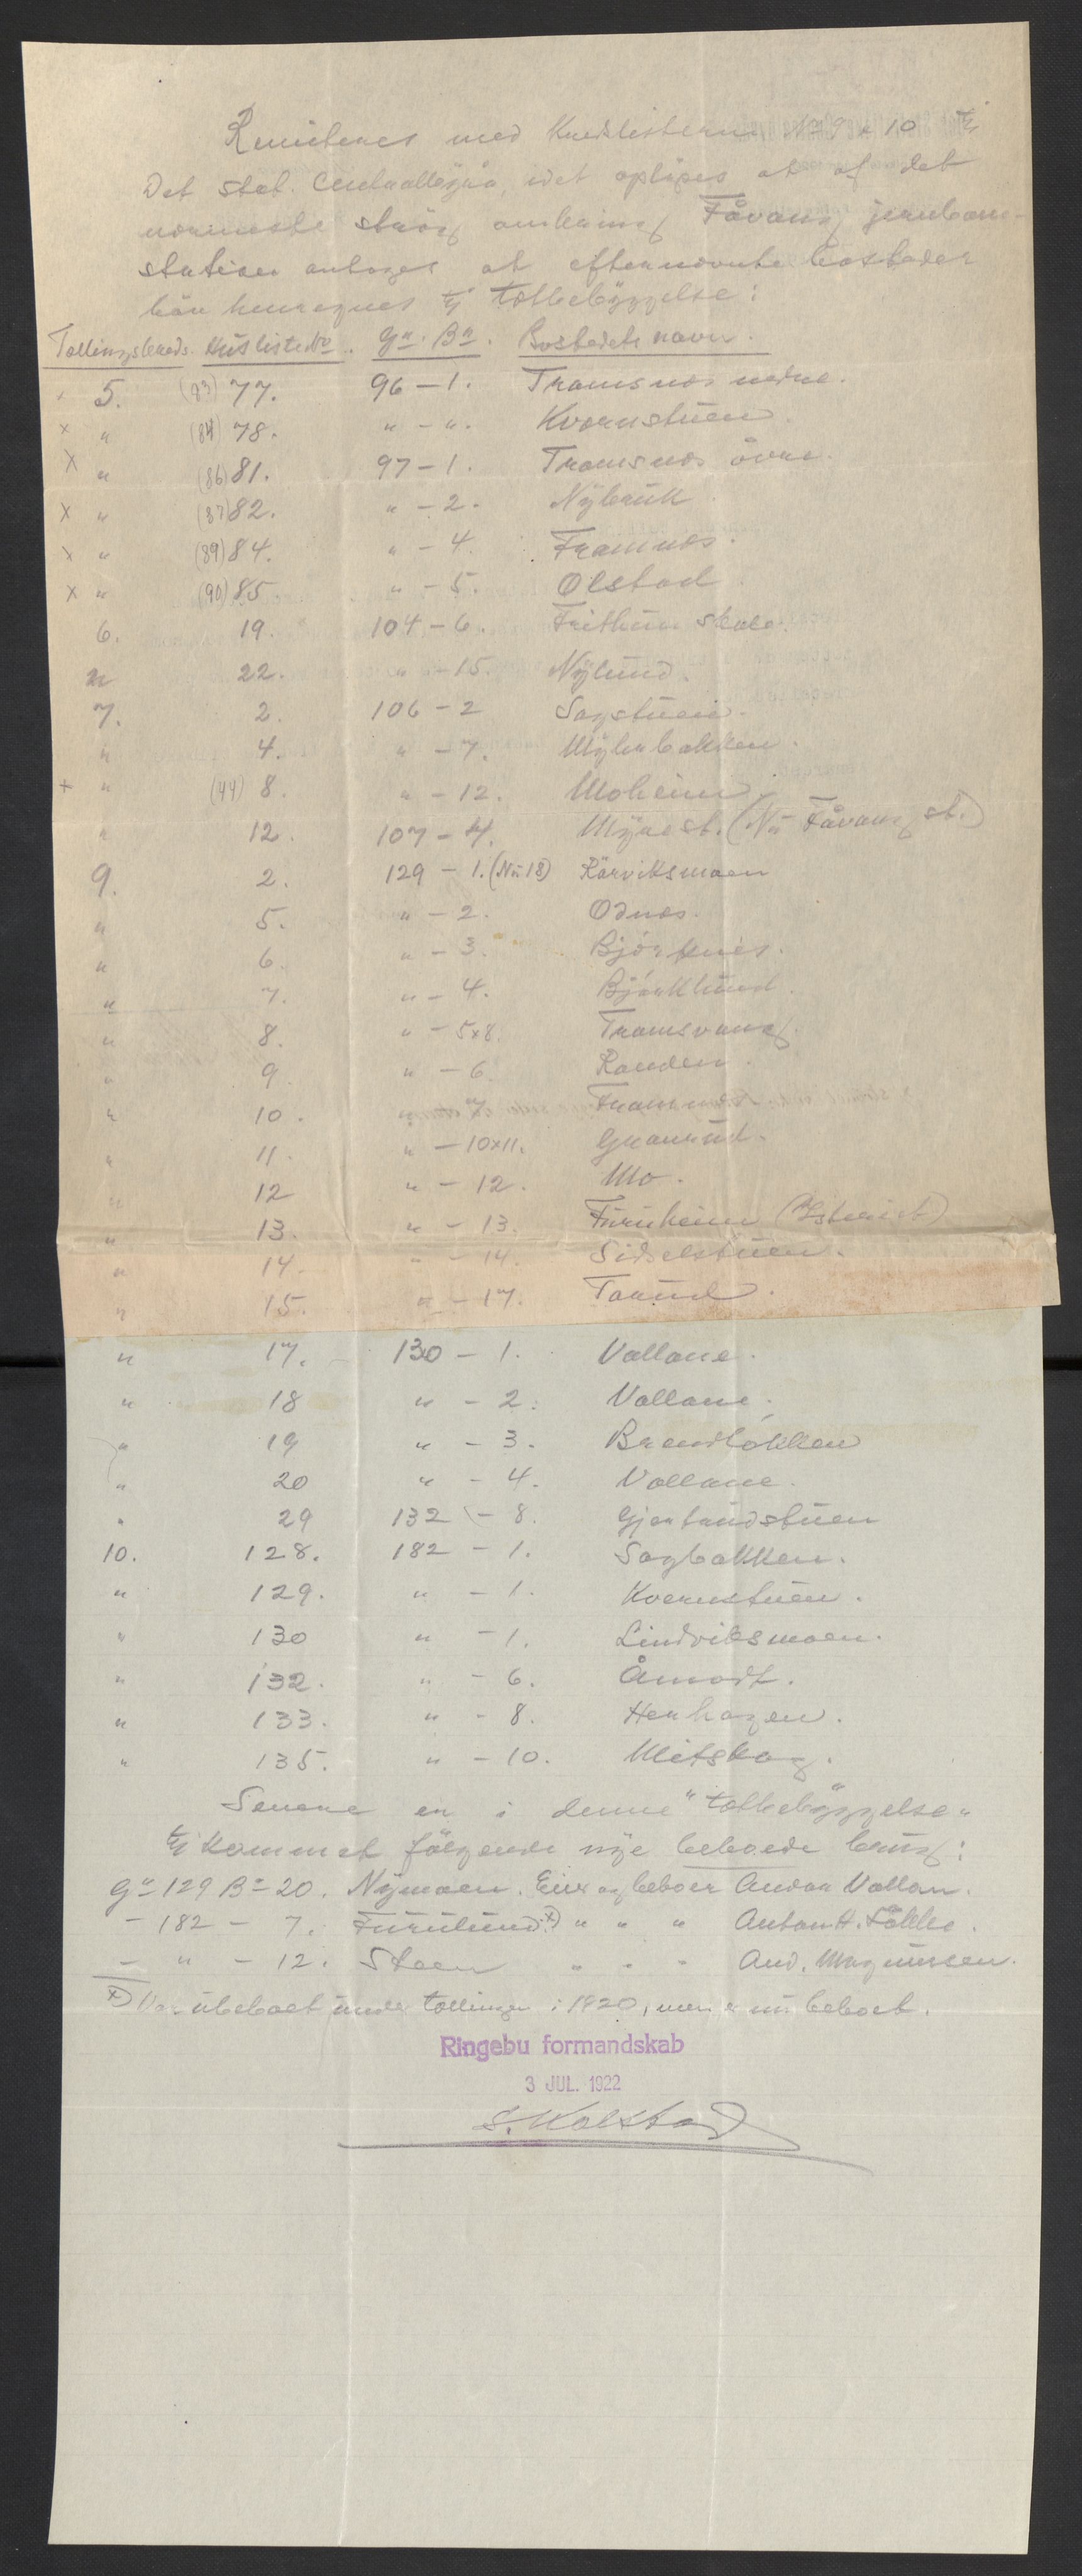 Remiteres med Kredslisterne No 9 & 10 til
Det stat. Centralbyrå, idet oplyses at af det
nærmeste strøg omkring Fåvang jernbane-
station antages at efternævnte bosteder
bør henregnes til tætbebyggelse:
Tællingskreds. Huslistens No. Gn. Bn. Bostedets navn.
5. (83) 77. 96 – 1. Tromsnæs nedre.
x " (84) 78. " – ". Kvernstuen.
x " (86) 81. 97 – 1. Tromsnæs övre.
x " (87) 82. " – 2. Nÿbrük
x " (89) 84. " – 4. Framnæs.
x " (90) 85. " – 5. Olstad.
6. 19. 104 – 6. Frithun skole.
" 22. " – 15. Nÿlund.
7. 2. 106 – 2 Sagstuen.
" 4. " – 7. Myhrbakken.
+ " (44) 8. " – 12. Moheim.
" 12. 107 – 4. Myrest. (Nu Fåvang st.)
9. 2. 129 – 1. (Nu 18) Rørviksmoen
" 5. " – 2. Odnæs.
" 6. " – 3. Bjørknes.
" 7. " – 4. Bjørklund.
" 8. " – 5x8. Tromsvang.
" 9. " – 6. Randen.
" 10. " – 7.
" 11. " – 10x11. Granrud.
" 12 " – 12. Mo.
" 13. " – 13. Furuheim
" 14. " – 14. Sidselstuen.
" 15. " – 17. Torud.
" 17. 130 – 1. Vollane.
" 18 " – 2. Vollane.
" 19 " – 3. Brendløkken
" 20 " – 4. Vollane.
" 29 132 – 8. Gjertrudstuen
10. 128. 182 – 1. Sagbakken.
" 129. " – 1. Kvernstuen.
" 130 " – 1. Lindviksmoen.
" 132. " – 6. Åmodt.
" 133. " – 8. Herhagen.
" 135. " – 10. Mitskog.
Senere er i denne "tætbebÿggelse"
til kommet følgende nÿe beboede bruk:
Gn 129 Bn 20. Nÿmoen. Eier og beboer Andor Vollan.
– 182 – 7. Furulund x) " " " Anton H. Løkke.
– " – 12. Steen " " " And. Magnussen.
x) Var ubeboet under tællingen i 1920, men er nu beboet.
Ringebu formandskab
3 JUL. 1922
S. Kolstad